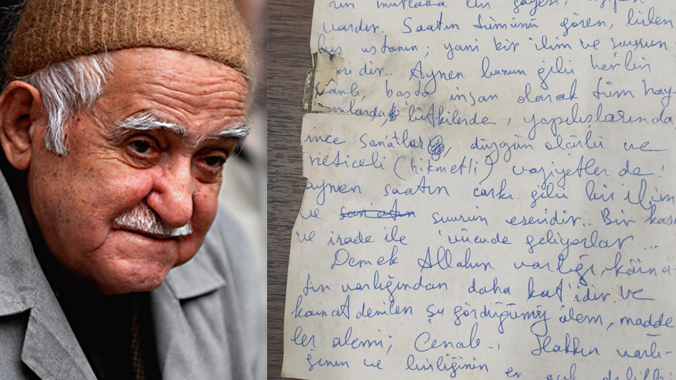 mutlaka bir gayesi,
vardır. Saatin tümünü gören, bilen
bir ustanın; yani bir ilim ve şuurun
dir.. Aynen bunun gibi her bir
canlı başta insan olarak tüm hay-
vanlarda, bitkilerde, yapılışlarında
ince sanatlar, düzgün ölçülü ve
neticeli (hikmetli) vaziyetler de!
aynen saatin çarkı gibi bir ilim
ve şuurun eseridir.. Bir kasd
ve irade ile vücude geliyorlar...
Demek Allahın varlığı, kâina-
tın varlığından daha kat'idir. ve
kainat denilen şu gördüğümüz âlem, madde
ler alemi; Cenab-ı Hakkın varlı-
ğının ve birliğinin en açık